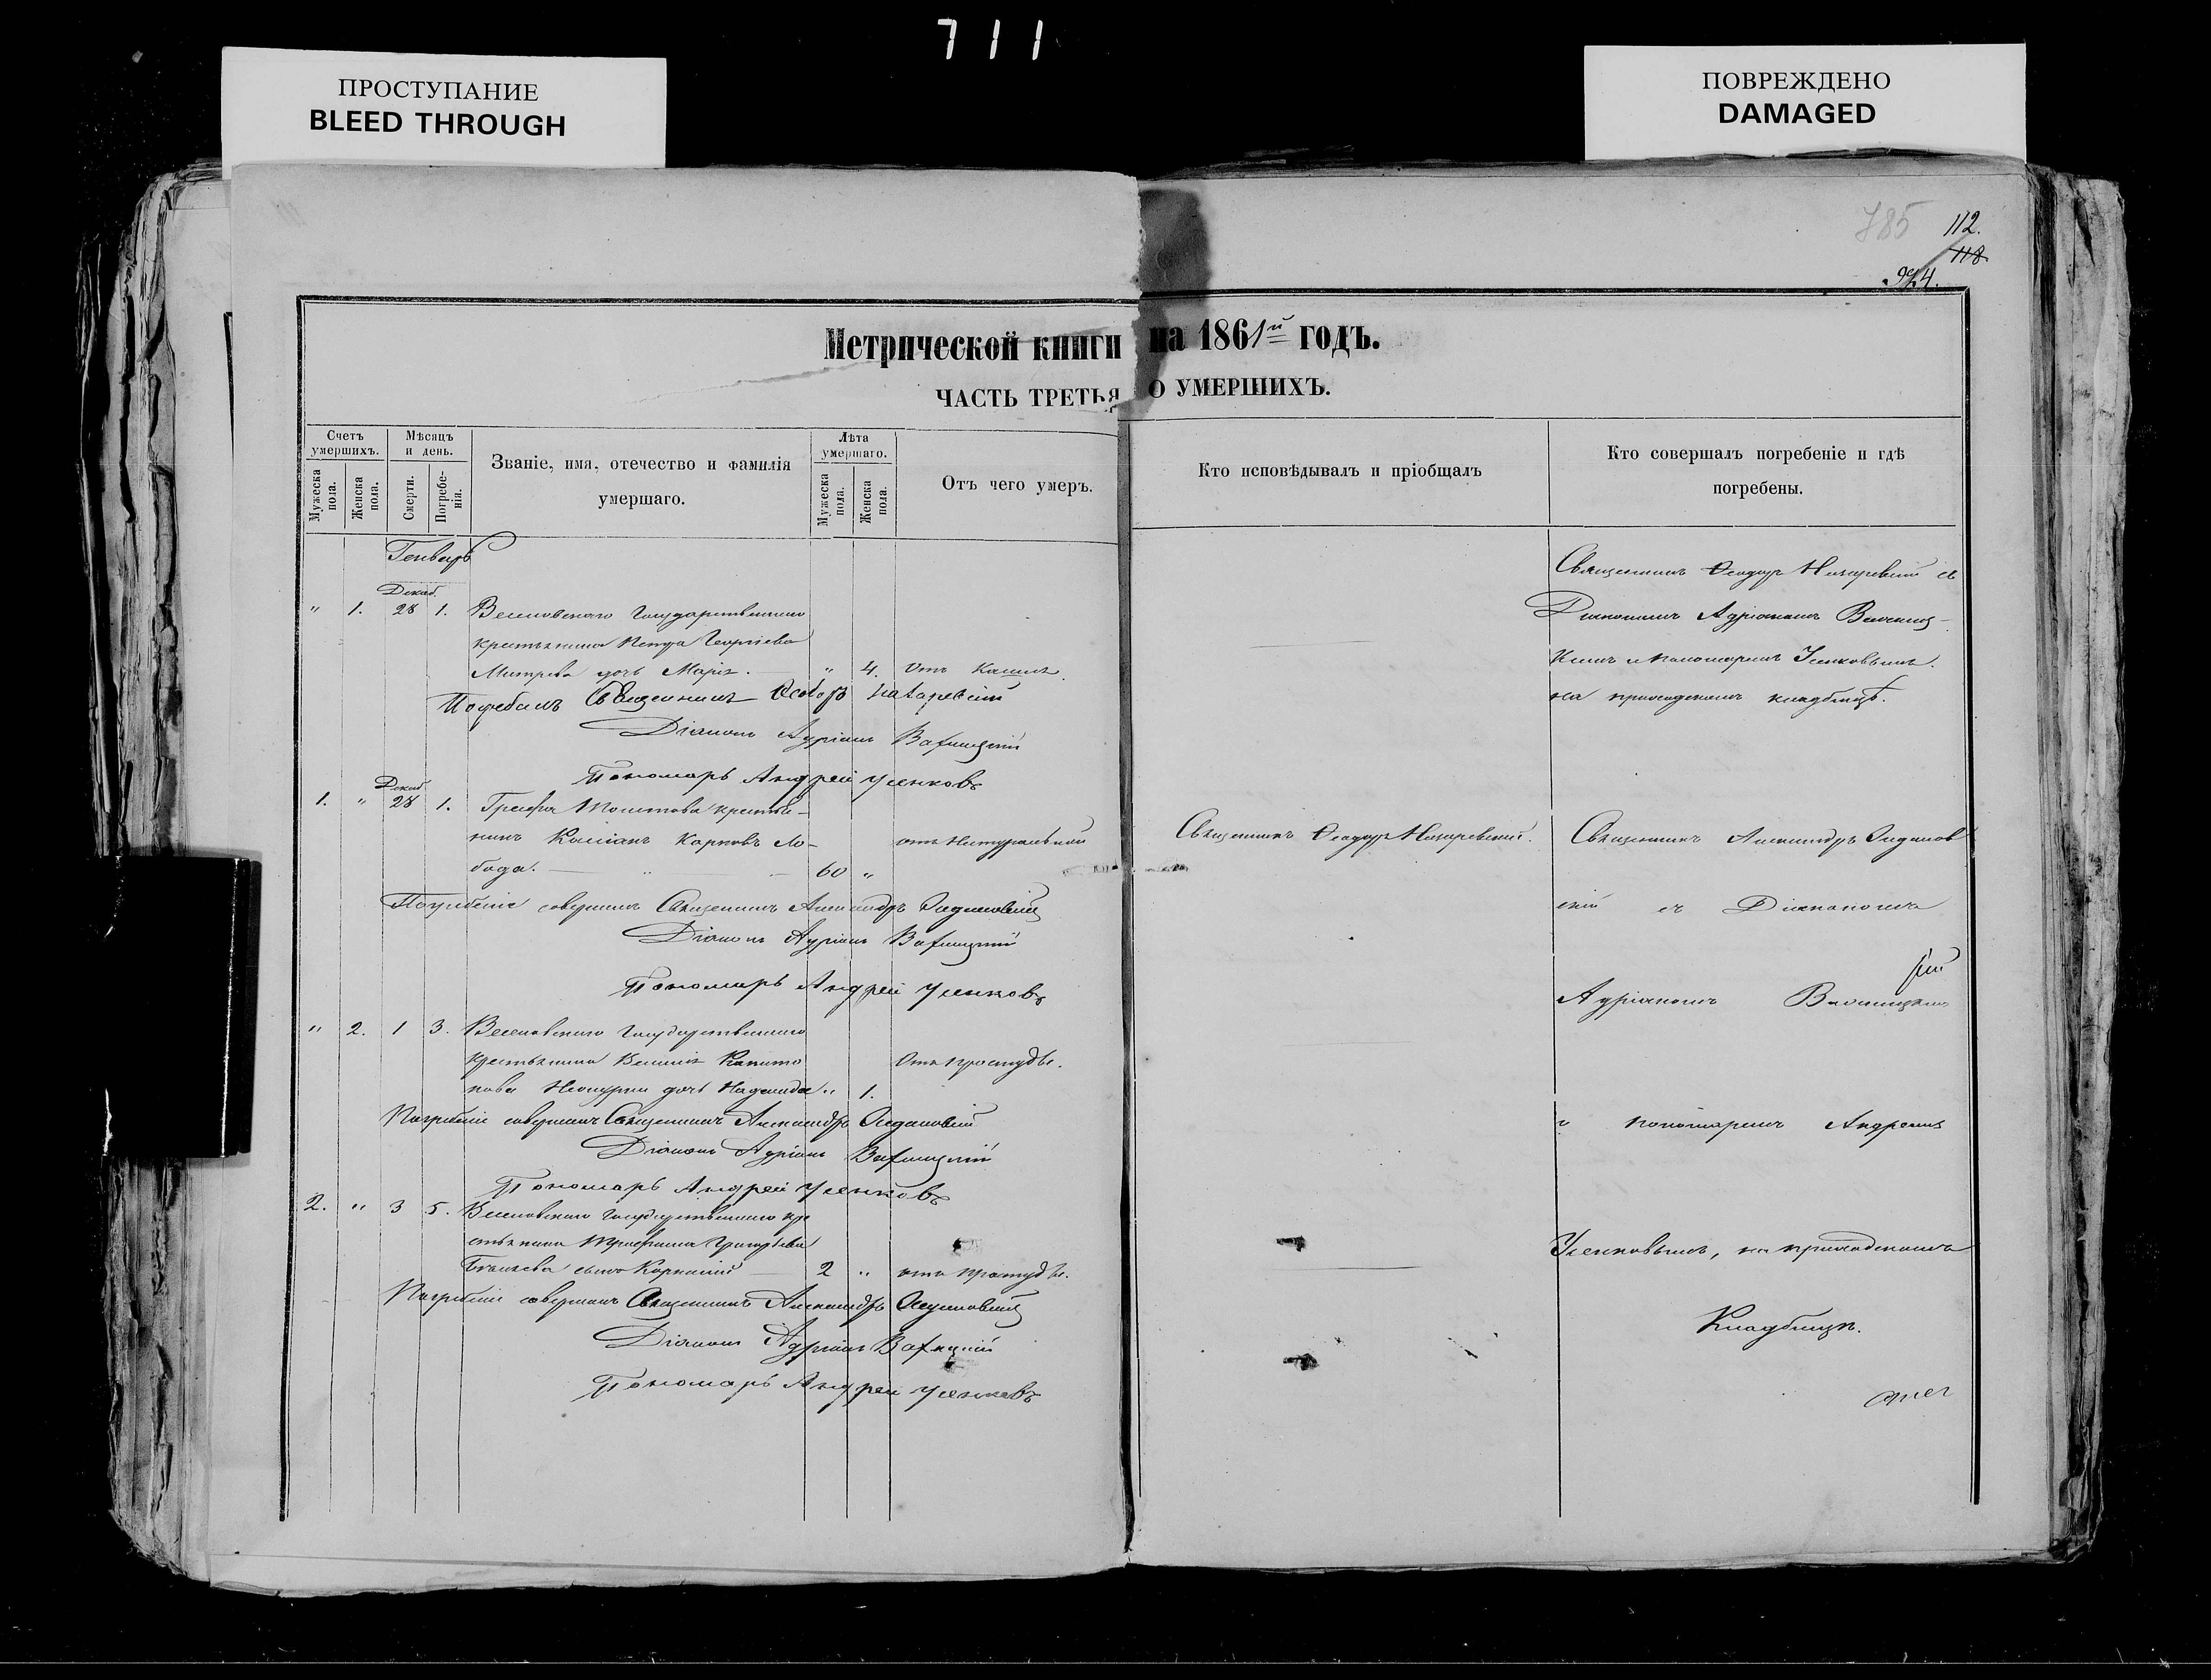 711
ПРОСТУПАНИЕ
BLEED THROUGH
ПОВРЕЖДЕНО
DAMAGED
785 112.
118
924.
Метрической книги на 1861й годъ.
ЧАСТЬ ТРЕТЬЯ О УМЕРШИХЪ.
Счетъ умершихъ.
Мужеска пола.
Женска пола.
Мѣсяцъ и день.
Смерти.
Погребенія.
Званіе, имя, отечество и фамилія
умершаго.
Лѣта умершаго.
Мужеска пола.
Женска пола.
Отъ чего умеръ.
Кто исповѣдывалъ и пріобщалъ
Кто совершалъ погребеніе и гдѣ
погребены.
Генварь
Декаб.
" 1. 28 1. Государственнаго
крестьянина Петра Георгіева
дочь Марія. " 4. отъ Кашля
Погребалъ Священникъ Ѳеодоръ Назаревскій
Діаконъ Адріанъ
Пономарь Андрей Усенковъ
Священникъ Ѳеодоръ Назаревскій съ
Діакономъ Адріаномъ
и Пономаремъ Усенковымъ.
на приходскомъ кладбищѣ.
Декаб
1. " 28 1. Графа крестья-
нинъ Кассіанъ Карповъ Ло-
бода. 60 "
отъ Натуральной
Священникъ Ѳеодоръ Назаревскій.
Погребеніе совершалъ Священникъ Александръ
Діаконъ Адріанъ
Пономарь Андрей Усенковъ
Священникъ Александръ
скій съ Діакономъ
Адріаномъ
" 2. 1 3. Государственнаго
крестьянина
дочь Надежда " 1.
отъ простуды.
Погребеніе совершалъ Священникъ Александръ
Діаконъ Адріанъ
Пономарь Андрей Усенковъ
и пономаремъ Андреемъ
2. " 3 5. Государственнаго кре
стьянина Трофима Григорьева
сынъ Корнилій 2 " отъ простуды.
Погребеніе совершалъ Священникъ Александръ
Діаконъ Адріанъ
Пономарь Андрей Усенковъ
Усенковымъ, на приходскомъ
Кладбищѣ.